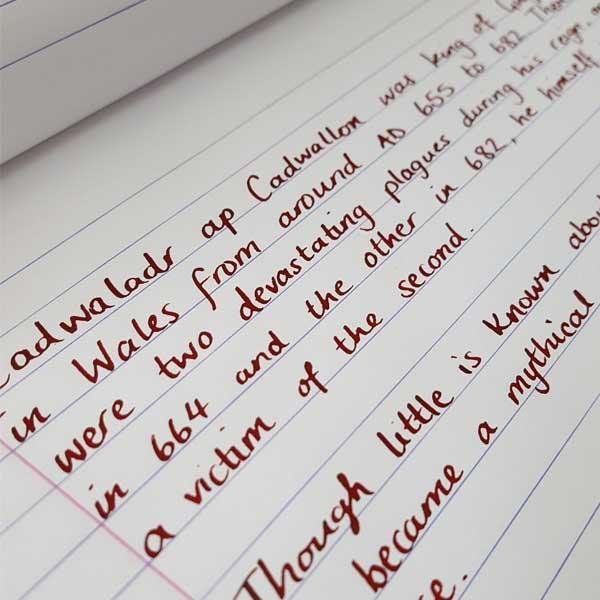 Cadwaladr ap Cadwallon was king of
in Wales from around AD 655 to 682
were two devastating plagues during his reign,
in 664 and the other in 682, he himself
a victim of the second.
Though little is known
became a mythical